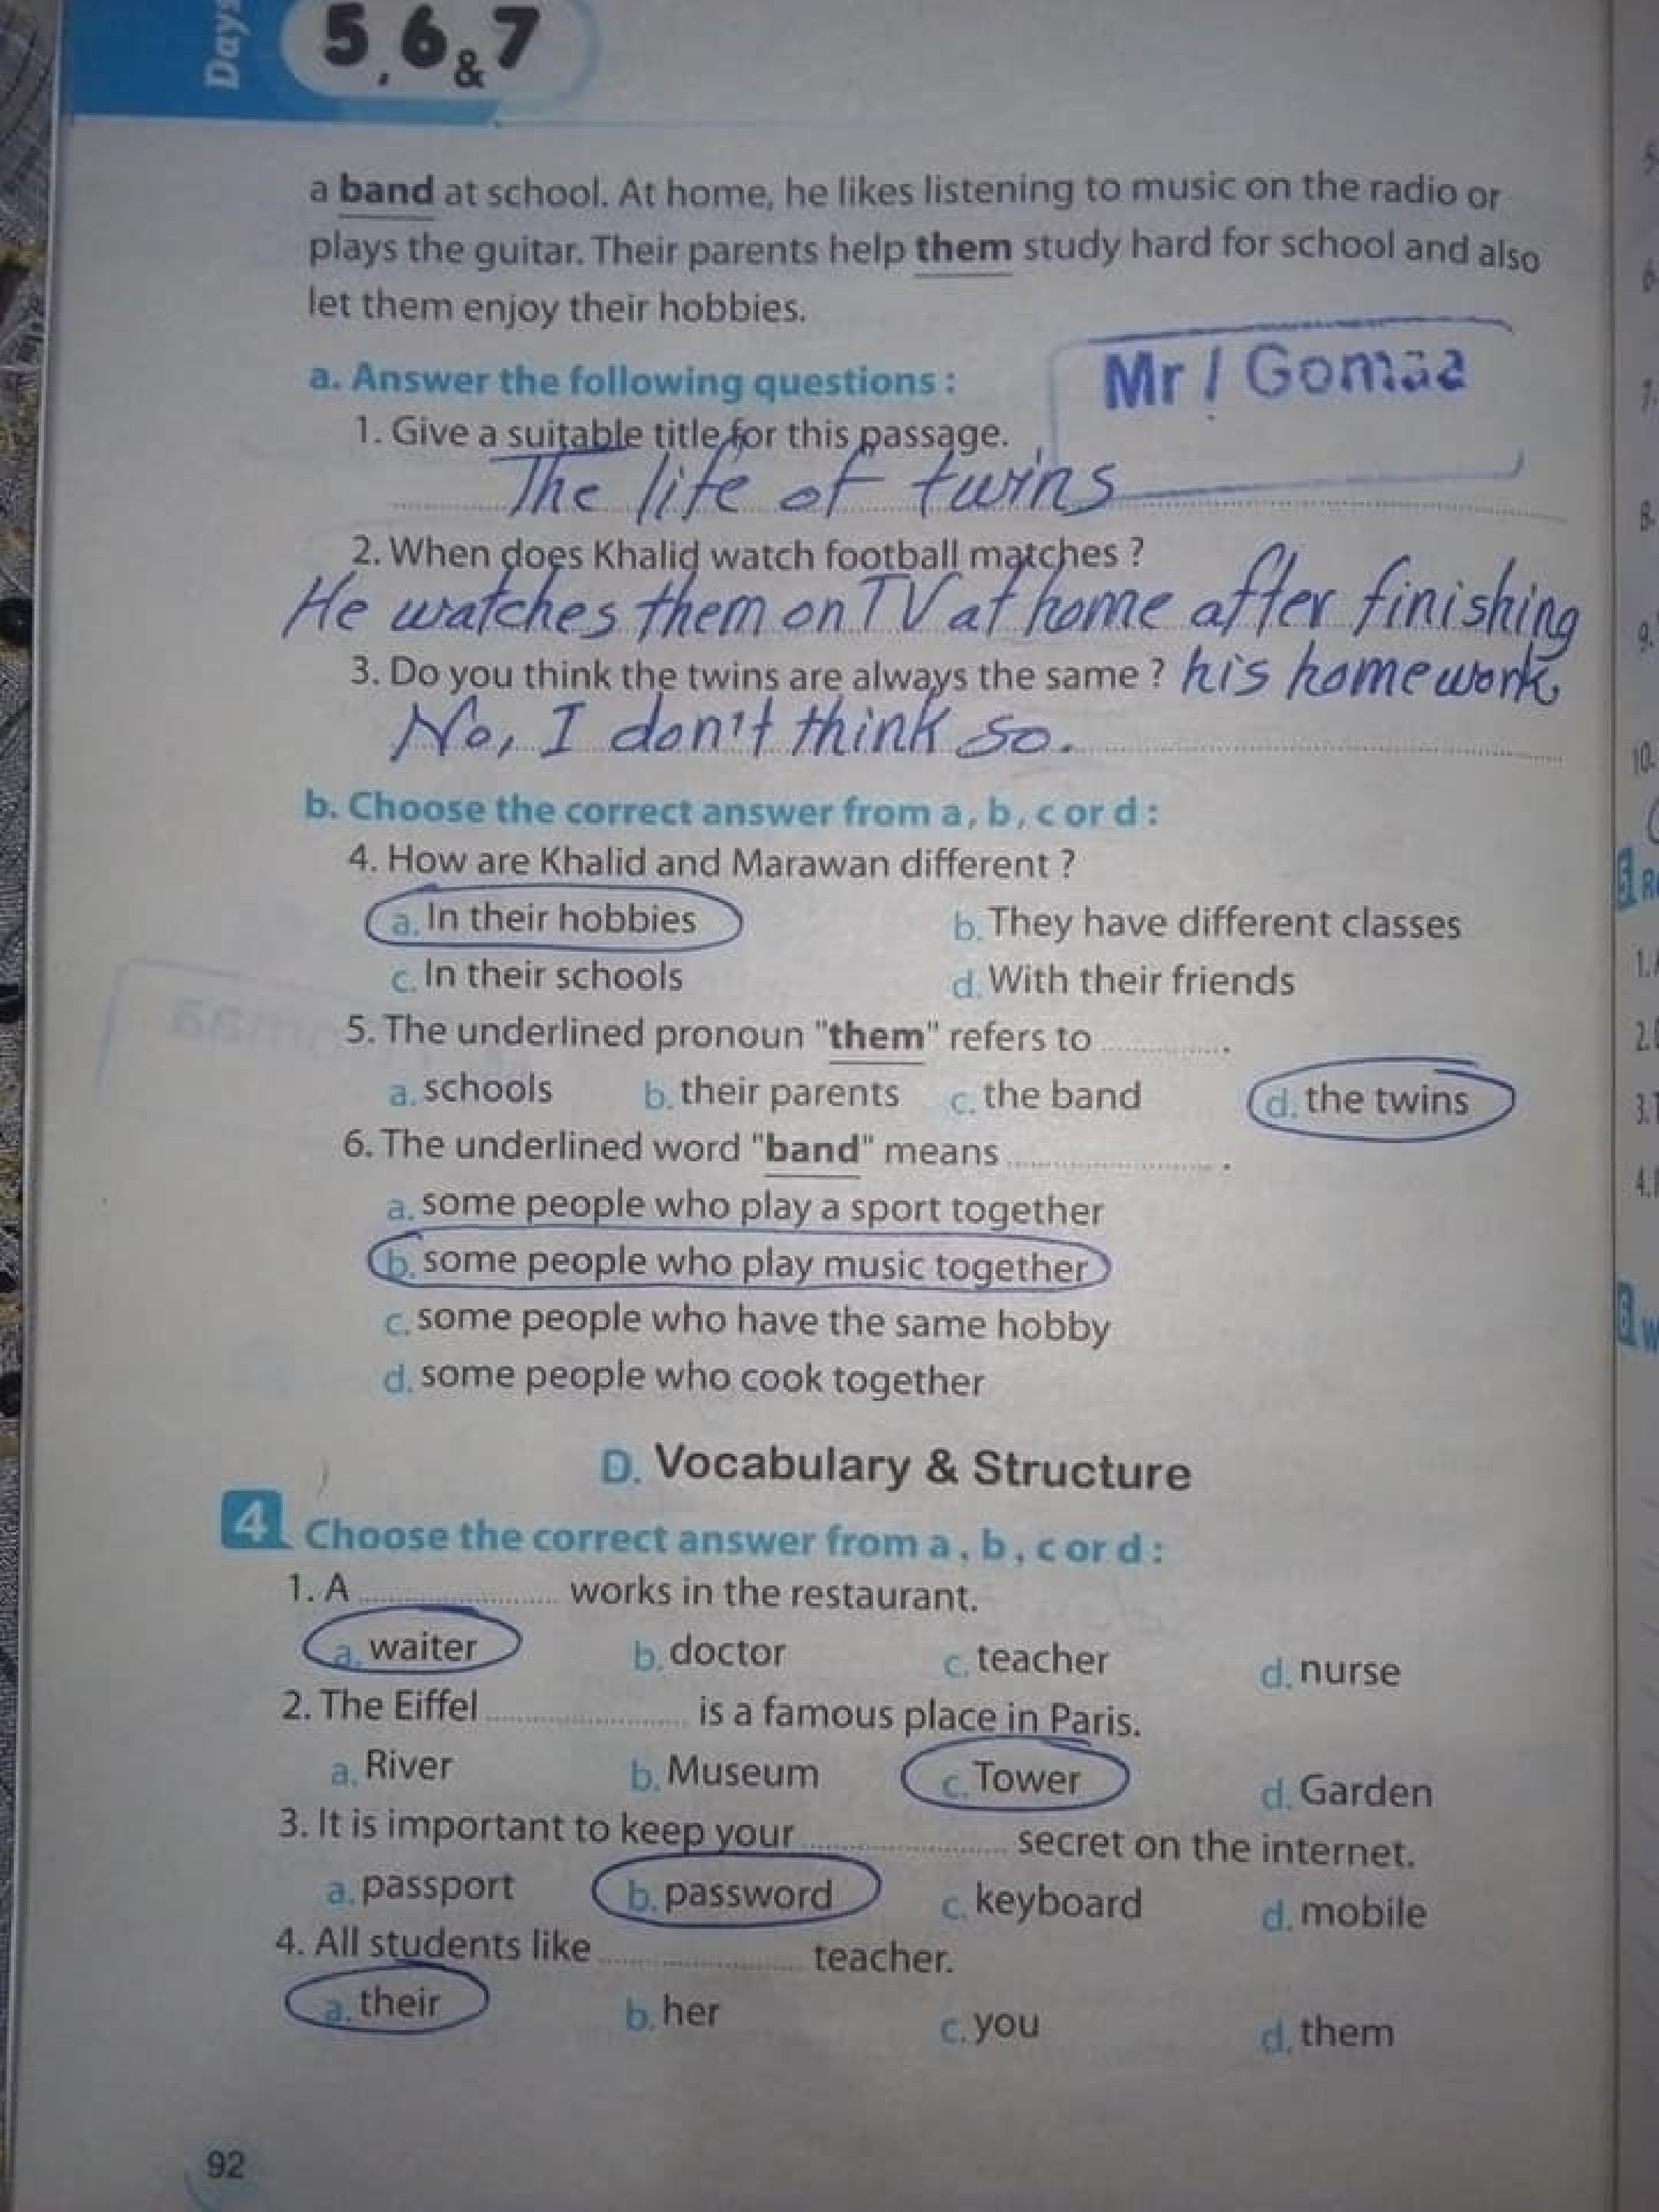 Days
5, 6 & 7
a band at school. At home, he likes listening to music on the radio or
plays the guitar. Their parents help them study hard for school and also
let them enjoy their hobbies.
a. Answer the following questions :
Mr / Gomaa
1. Give a suitable title for this passage.
The life of twins
2. When does Khalid watch football matches ?
He watches them on TV at home after finishing
3. Do you think the twins are always the same ? his homework.
No, I don't think so.
b. Choose the correct answer from a, b, c or d :
4. How are Khalid and Marawan different ?
a. In their hobbies b. They have different classes
c. In their schools d. With their friends
5. The underlined pronoun "them" refers to .............. .
a. schools b. their parents c. the band d. the twins
6. The underlined word "band" means ...................... .
a. some people who play a sport together
b. some people who play music together
c. some people who have the same hobby
d. some people who cook together
D. Vocabulary & Structure
4 Choose the correct answer from a, b, c or d :
1. A ...................... works in the restaurant.
a. waiter b. doctor c. teacher d. nurse
2. The Eiffel ...................... is a famous place in Paris.
a. River b. Museum c. Tower d. Garden
3. It is important to keep your ...................... secret on the internet.
a. passport b. password c. keyboard d. mobile
4. All students like ...................... teacher.
a. their b. her c. you d. them
92